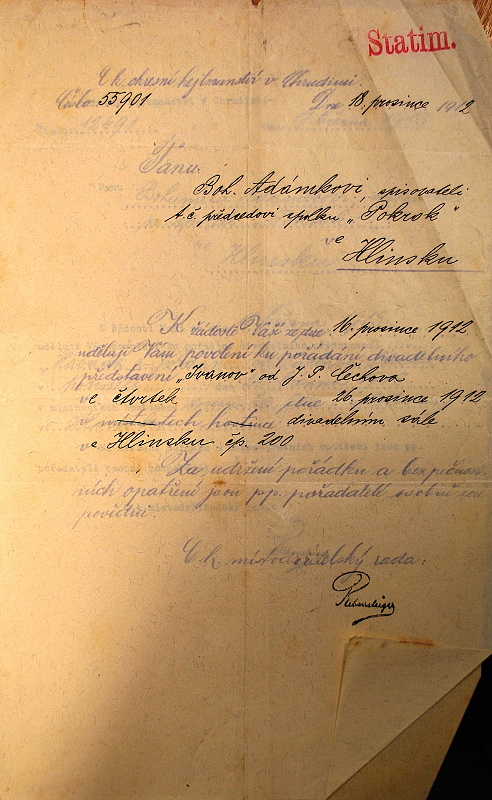 Statim.
C. k. okresní hejtmanství v Chrudimi
Číslo 55901
Dne 18. prosince 1912
Pánu
Boh. Adámkovi, spisovateli
t. č. předsedovi spolku „Pokrok“
ve
Hlinsku
K žádosti Vaší ze dne 16. prosince 1912
uděluji Vám povolení ku pořádání divadelního
představení „Ivanov“ od J. P. Čechova
ve čtvrtek dne 26. prosince 1912
v místnostech hostince divadelním sále
ve Hlinsku čp. 200
Za udržení pořádku a bezpečnost-
ních opatření jsou pp. pořadatelé osobně zod
povědni.
C. k. místodržitelský rada: